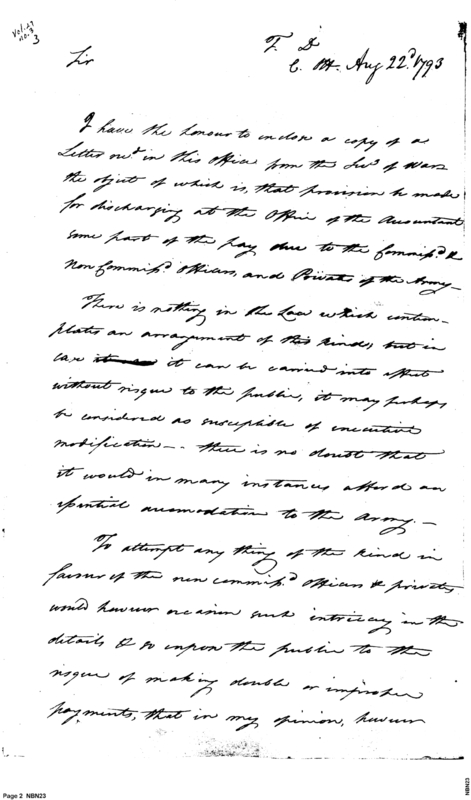 Vol. 29
no. 3
3
T. D
C. Off. Aug 22d. 1793
Sir
I have the honour to enclose a copy of a
Letter recd in this Office from the Secy of War
the object of which is, that provision be made
for discharging at the Office of the Accountant
some part of the pay due to the Commissd &
Non Commissd Officers, and Privates of the Army –
There is nothing in the Law which contem-
plates an arrangement of this kind, but in
case it can be carried into effect
without risque to the public, it may perhaps
be considered as susceptible of executive
modification – . there is no doubt that
it would in many instances afford an
essential accomodation to the Army. –
To attempt any thing of the kind in
favour of the non commissd Officers & privates
would however occasion such intricacy in the
details & so expose the public to the
risque of making double or improper
payments, that in my opinion, however
Page 2 NBN23
NBN23